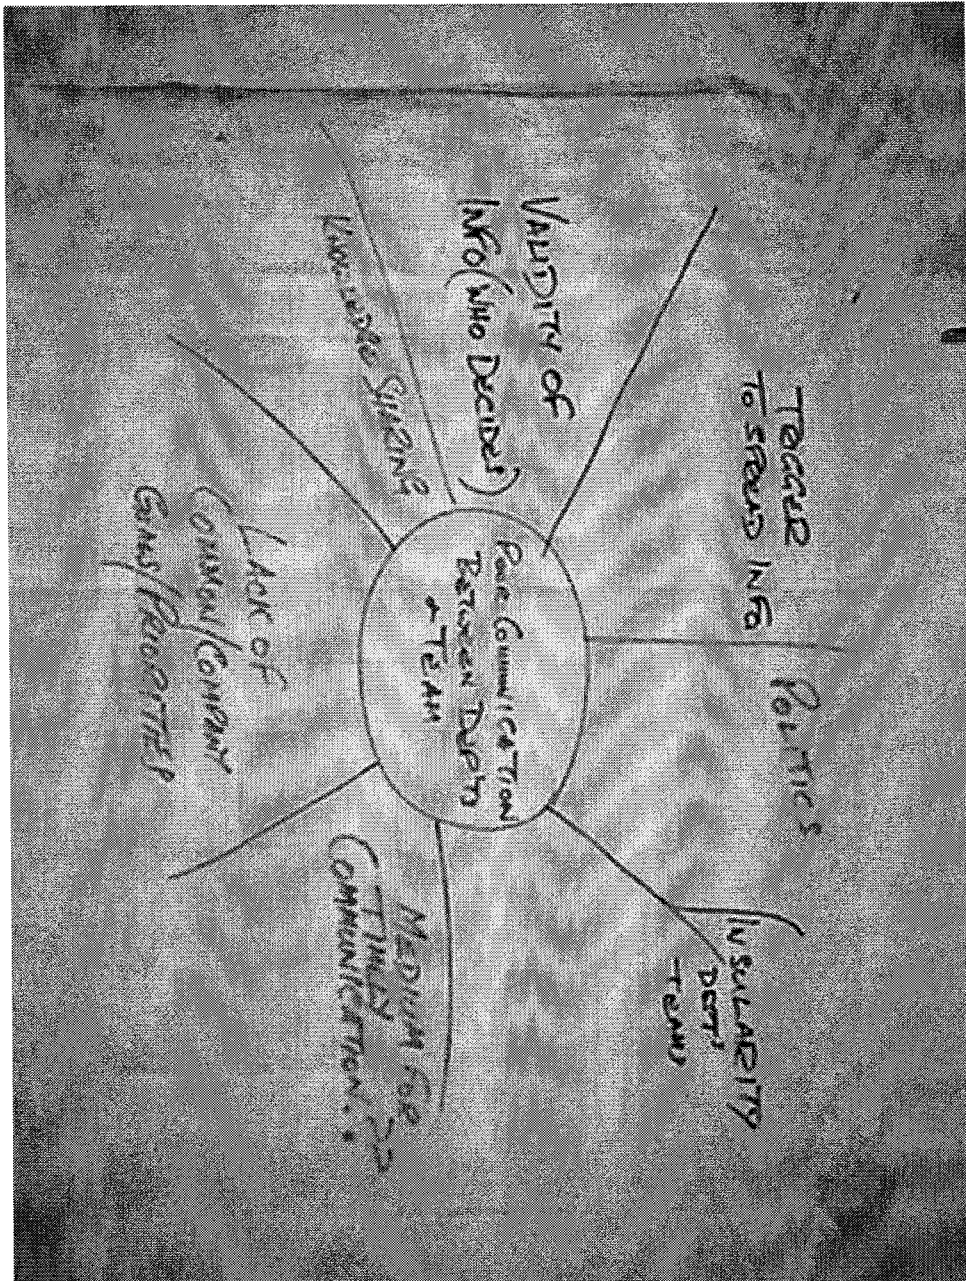 POOR COMMUNICATION
BETWEEN DEPTS
& TEAM
TRIGGER
TO SPREAD INFO
POLITICS
INSULARITY
DEPTS
TEAMS
MEDIUM FOR
TIMELY
COMMUNICATION??
LACK OF
COMMON/COMPANY
GOALS/PRIORITIES
KNOWLEDGE SHARING
VALIDITY OF
INFO (WHO DECIDES)